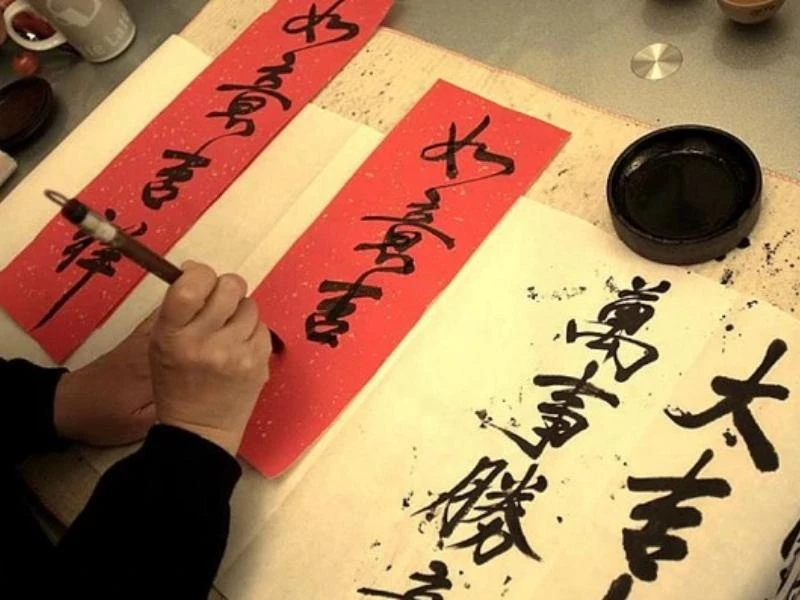 大吉
萬事勝意
如意吉
如意吉祥